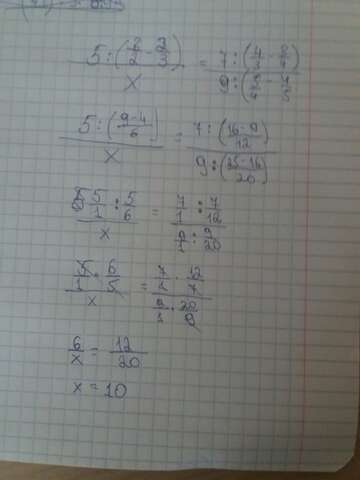 5:(3/2-2/3)/x = 7:(4/3-3/4)/9:(5/4-4/5
5:(9-4/6)/x = 7:(16-9/12)/9:(25-16/20)
5/1:5/6/x = 7/1:7/12/9/1:9/20
5/1·6/5/x = 7/1·12/7/9/1·20/9
6/x = 12/20
x = 10